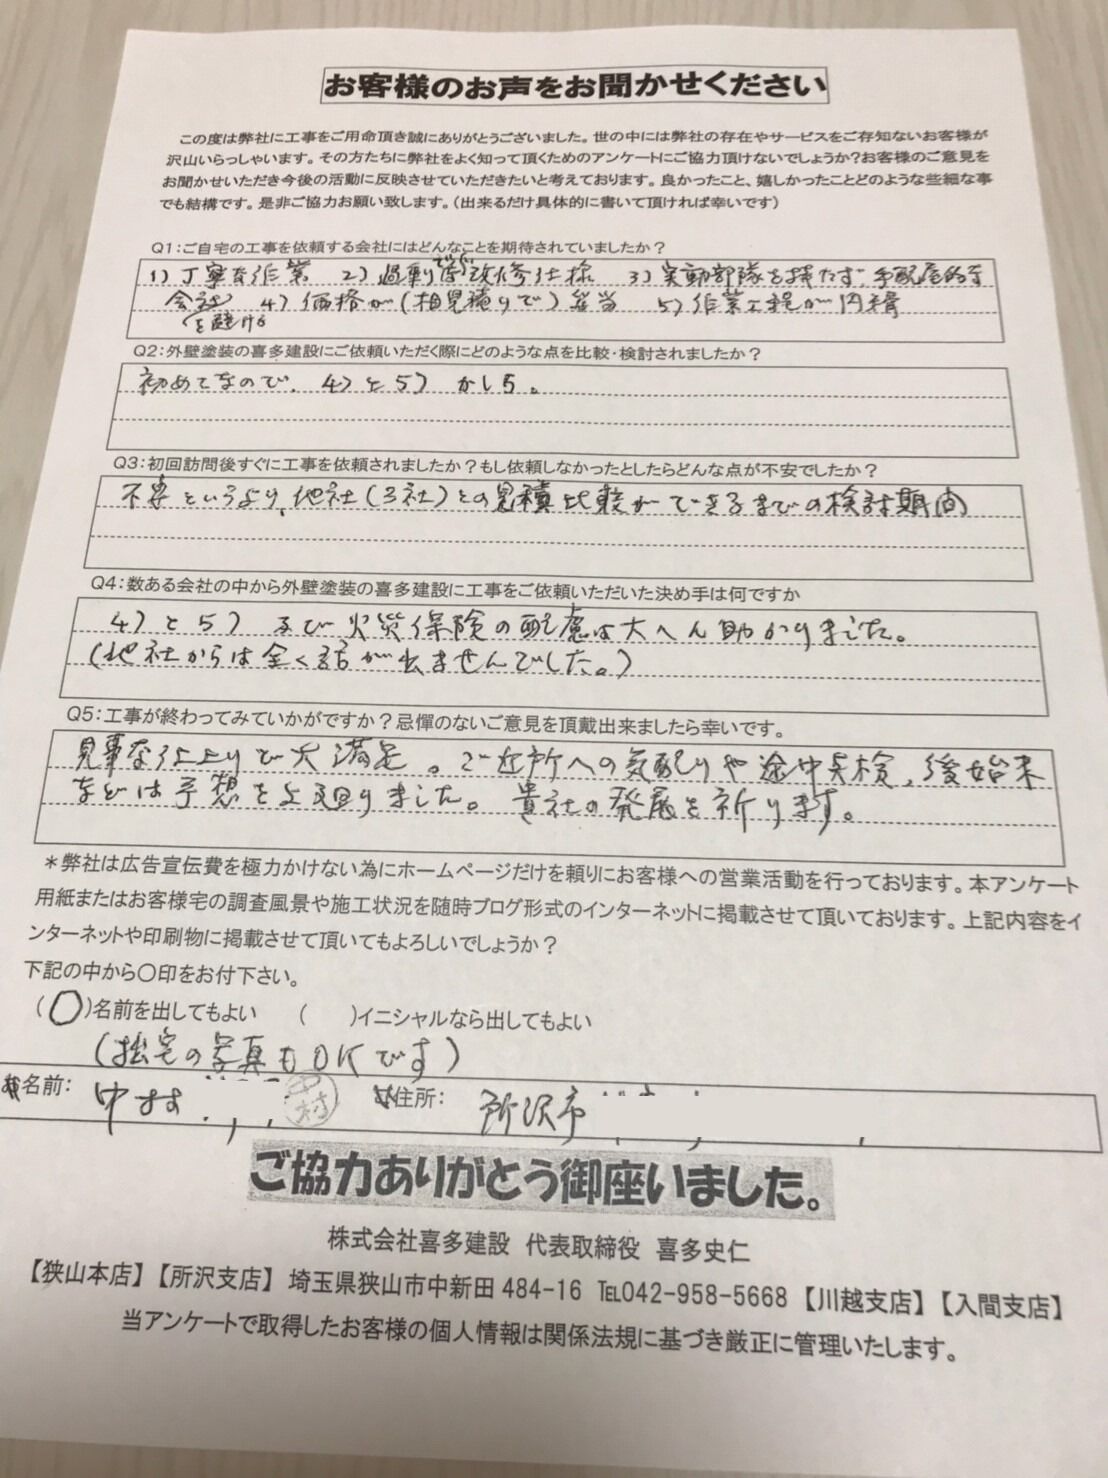 お客様のお声をお聞かせください
この度は弊社に工事をご用命頂き誠にありがとうございました。世の中には弊社の存在やサービスをご存知ないお客様が
沢山いらっしゃいます。その方たちに弊社をよく知って頂くためのアンケートにご協力頂けないでしょうか?お客様のご意見を
お聞かせいただき今後の活動に反映させていただきたいと考えております。良かったこと、嬉しかったことどのような些細な事
でも結構です。是非ご協力お願い致します。(出来るだけ具体的に書いて頂ければ幸いです)
Q1:ご自宅の工事を依頼する会社にはどんなことを期待されていましたか?
1)丁寧な作業 2)過剰でない改修仕様 3)実動部隊を持たず、手配屋的な
会社を避ける 4)価格が(相見積りで)妥当 5)作業工程が円滑
Q2:外壁塗装の喜多建設にご依頼いただく際にどのような点を比較・検討されましたか?
初めてなので、4)と5)かしら。
Q3:初回訪問後すぐに工事を依頼されましたか?もし依頼しなかったとしたらどんな点が不安でしたか?
不安というより、他社(3社)との見積比較ができるまでの検討期間
Q4:数ある会社の中から外壁塗装の喜多建設に工事をご依頼いただいた決め手は何ですか
4)と5)及び火災保険の配慮は大へん助かりました。
(他社からは全く話が出ませんでした。)
Q5:工事が終わってみていかがですか?忌憚のないご意見を頂戴出来ましたら幸いです。
見事な仕上りで大満足。ご近所への気配りや途中点検、後始末
などは予想を上廻りました。貴社の発展を祈ります。
*弊社は広告宣伝費を極力かけない為にホームページだけを頼りにお客様への営業活動を行っております。本アンケート
用紙またはお客様宅の調査風景や施工状況を随時ブログ形式のインターネットに掲載させて頂いております。上記内容をイ
ンターネットや印刷物に掲載させて頂いてもよろしいでしょうか?
下記の中から〇印をお付下さい。
(〇)名前を出してもよい ( )イニシャルなら出してもよい
(拙宅の写真もOKです)
お名前: 中村 中村 ご住所: 所沢市
ご協力ありがとう御座いました。
株式会社喜多建設 代表取締役 喜多史仁
【狭山本店】【所沢支店】 埼玉県狭山市中新田 484-16 ℡042-958-5668 【川越支店】【入間支店】
当アンケートで取得したお客様の個人情報は関係法規に基づき厳正に管理いたします。